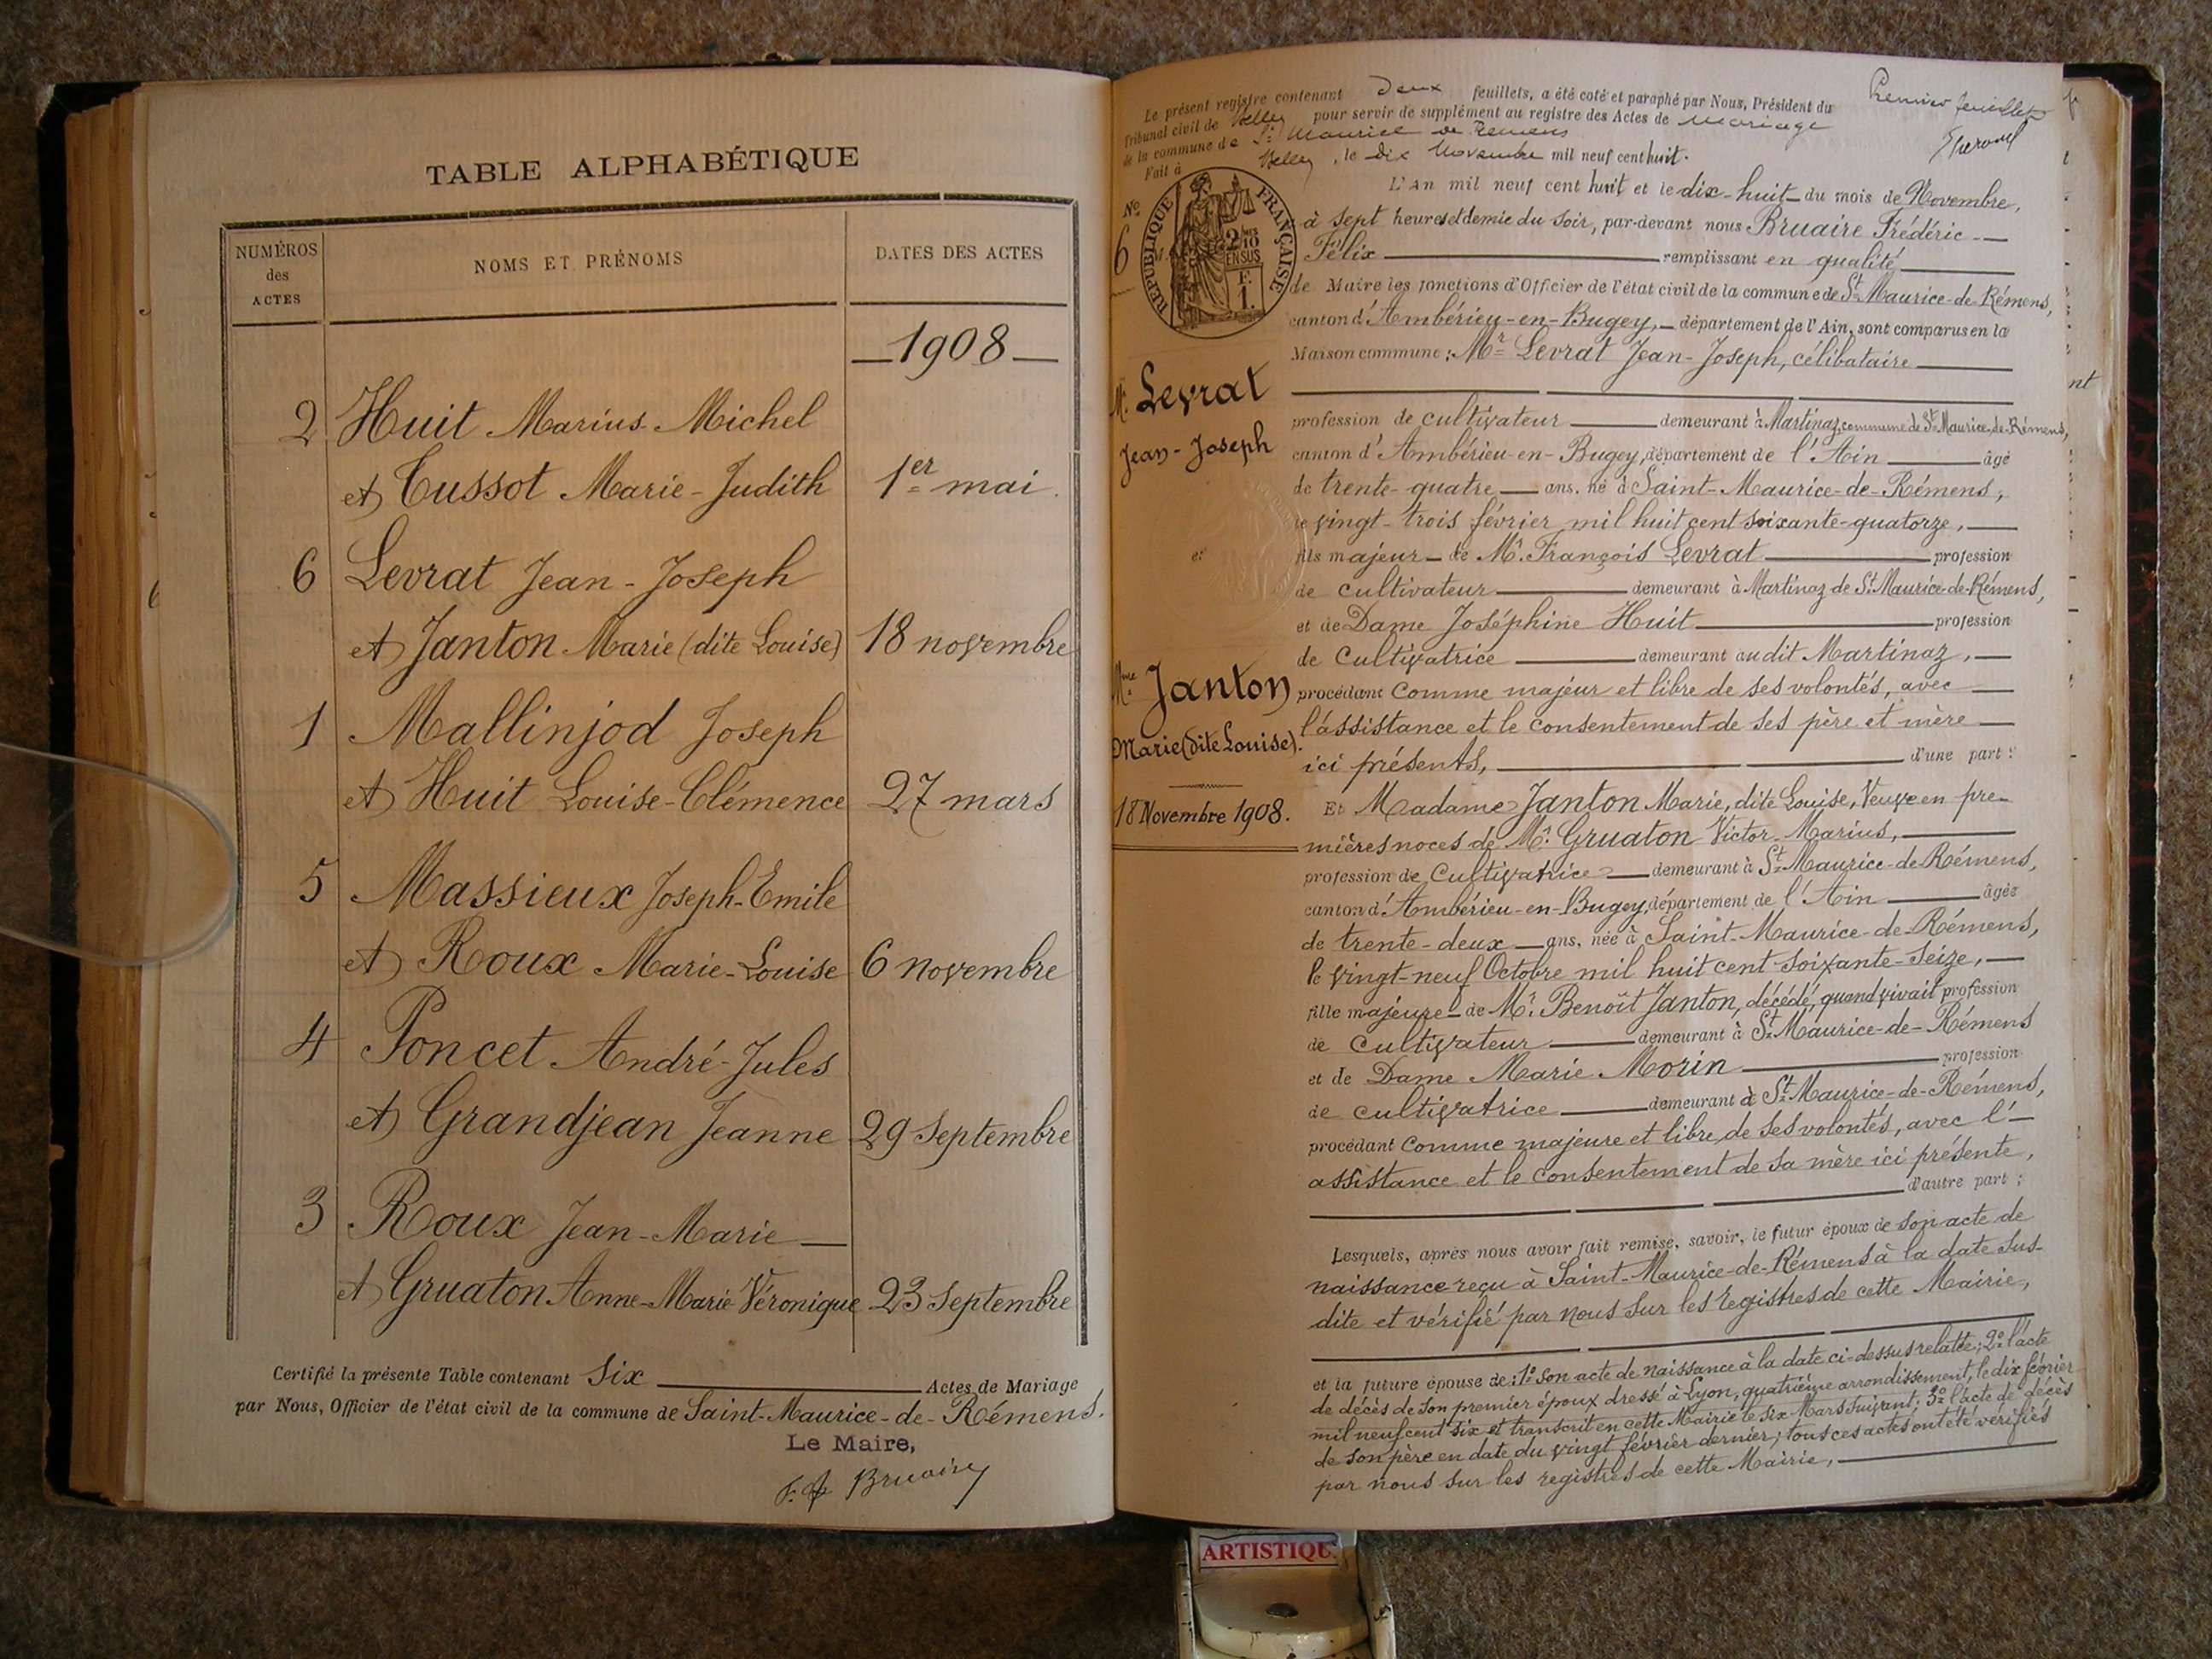 TABLE ALPHABÉTIQUE
NUMÉROS des ACTES
NOMS ET PRÉNOMS
DATES DES ACTES
1908
2 Huit Marius-Michel
et Cussot Marie-Judith 1er mai
6 Levrat Jean-Joseph
et Janton Marie (dite Louise) 18 novembre
1 Mallinjod Joseph
et Huit Louise-Clémence 27 mars
5 Massieux Joseph-Emile
et Roux Marie-Louise 6 novembre
4 Poncet André-Jules
et Grandjean Jeanne 29 Septembre
3 Roux Jean-Marie
et Gruaton Anne-Marie Véronique 23 Septembre
Certifié la présente Table contenant Six Actes de Mariage
par Nous, Officier de l'état civil de la commune de Saint-Maurice-de-Rémens.
Le Maire,
Bruaire
Le présent registre contenant Deux feuillets, a été coté et paraphé par Nous, Président du
Tribunal civil de Belley pour servir de supplément au registre des Actes de mariage
de la commune de St Maurice de Remens
Fait à Belley, le Dix Novembre mil neuf cent huit.
Premier feuillet
No 6
RÉPUBLIQUE FRANÇAISE
2/10 EN SUS
F. 1.
L'An mil neuf cent huit et le dix-huit du mois de Novembre,
à sept heures et demie du soir, par-devant nous Bruaire Frédéric-
Félix remplissant en qualité
de Maire les fonctions d'Officier de l'état civil de la commune de St Maurice-de-Rémens,
canton d'Ambérieu-en-Bugey, département de l'Ain, sont comparus en la
Maison commune : Mr Levrat Jean-Joseph, célibataire
M. Levrat
Jean-Joseph
et
Mme Janton
Marie (dite Louise).
18 Novembre 1908.
profession de cultivateur demeurant à Martinaz, commune de St Maurice-de-Rémens,
canton d'Ambérieu-en-Bugey, département de l'Ain âgé
de trente-quatre ans, né à Saint-Maurice-de-Rémens,
le vingt-trois février mil huit cent soixante-quatorze,
fils majeur de Mr. François Levrat profession
de cultivateur demeurant à Martinaz de St Maurice-de-Rémens,
et de Dame Joséphine Huit profession
de Cultivatrice demeurant audit Martinaz,
procédant comme majeur et libre de ses volontés, avec
l'assistance et le consentement de ses père et mère
ici présents, d'une part :
Et Madame Janton Marie, dite Louise, Veuve en pre-
mières noces de Mr. Gruaton Victor-Marius,
profession de Cultivatrice demeurant à St Maurice-de-Rémens,
canton d'Ambérieu-en-Bugey, département de l'Ain âgée
de trente-deux ans, née à Saint-Maurice-de-Rémens,
le vingt-neuf Octobre mil huit cent soixante-seize,
fille majeure de Mr. Benoît Janton, décédé, quand vivait profession
de Cultivateur demeurant à St Maurice-de-Rémens
et de Dame Marie Morin profession
de cultivatrice demeurant à St Maurice-de-Rémens,
procédant comme majeure et libre de ses volontés, avec l'-
assistance et le consentement de sa mère ici présente,
d'autre part ;
Lesquels, après nous avoir fait remise, savoir, le futur époux de son acte de
naissance reçu à Saint-Maurice-de-Rémens à la date sus-
dite et vérifié par nous sur les registres de cette Mairie,
et la future épouse de : 1° son acte de naissance à la date ci-dessus relatée ; 2° l'acte
de décès de son premier époux dressé à Lyon, quatrième arrondissement, le dix février
mil neuf cent six et transcrit en cette Mairie le six Mars suivant ; 3° l'acte de décès
de son père en date du vingt février dernier ; tous ces actes ont été vérifiés
par nous sur les registres de cette Mairie,
nt
ARTISTIQU